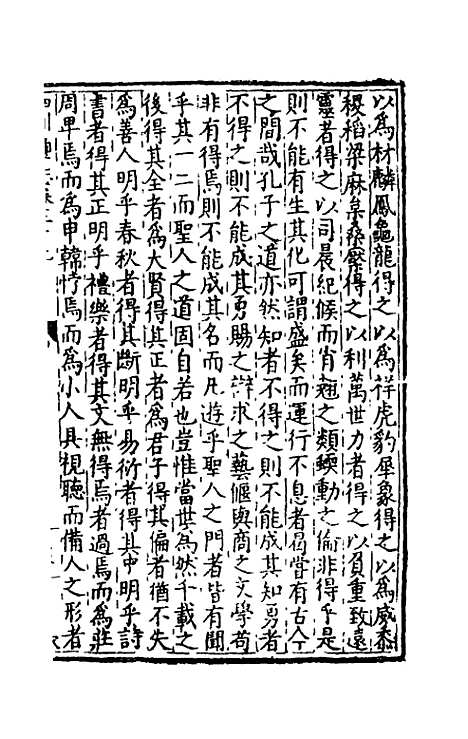 以爲材麟鳳龜龍得之以爲祥虎豹犀象得之以爲威黍
稷稻粱麻枲桑檿得之以利萬世力者得之以負重致遠
靈者得之以司晨紀候而肖翹之類蝡動之倫非得乎是
則不能有生其化可謂盛矣而運行不息者曷嘗有古今
之間哉孔子之道亦然知者不得之則不能成其知勇者
不得之則不能成其勇賜之辯求之藝偃與商之文學苟
非有得焉則不能成其名而凡遊乎聖人之門者皆有聞
乎其一二而聖人之道固自若也豈惟當世爲然千載之
後得其全者爲大賢得其正者爲君子得其偏者猶不失
爲善人明乎春秋者得其斷明乎易者得其中明乎詩
書者得其正明乎禮樂者得其文無得焉者過焉而爲莊
周卑焉而爲申韓悖焉而爲小人具視聽而備人之形者